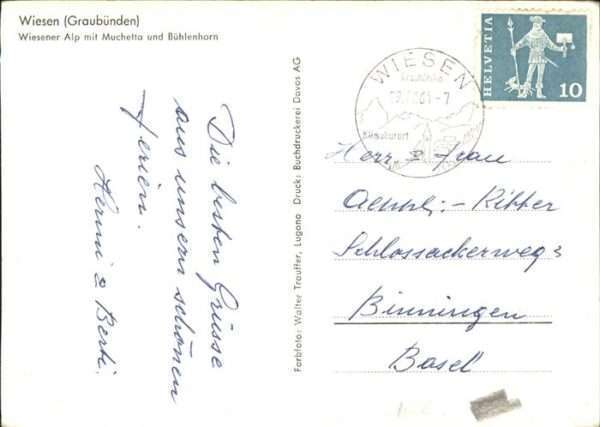 Wiesen (Graubünden)
Wiesener Alp mit Muchetta und Bühlenhorn
Die besten Grüsse
aus unsern schönen
Ferien.
Hermi & Berti.
Farbfoto: Walter Trauffer, Lugano Druck: Buchdruckerei Davos AG
WIESEN
61-7
Klimakurort
HELVETIA
10
Herr & Frau
Ritter
Schlossackerweg
Binningen
Basel